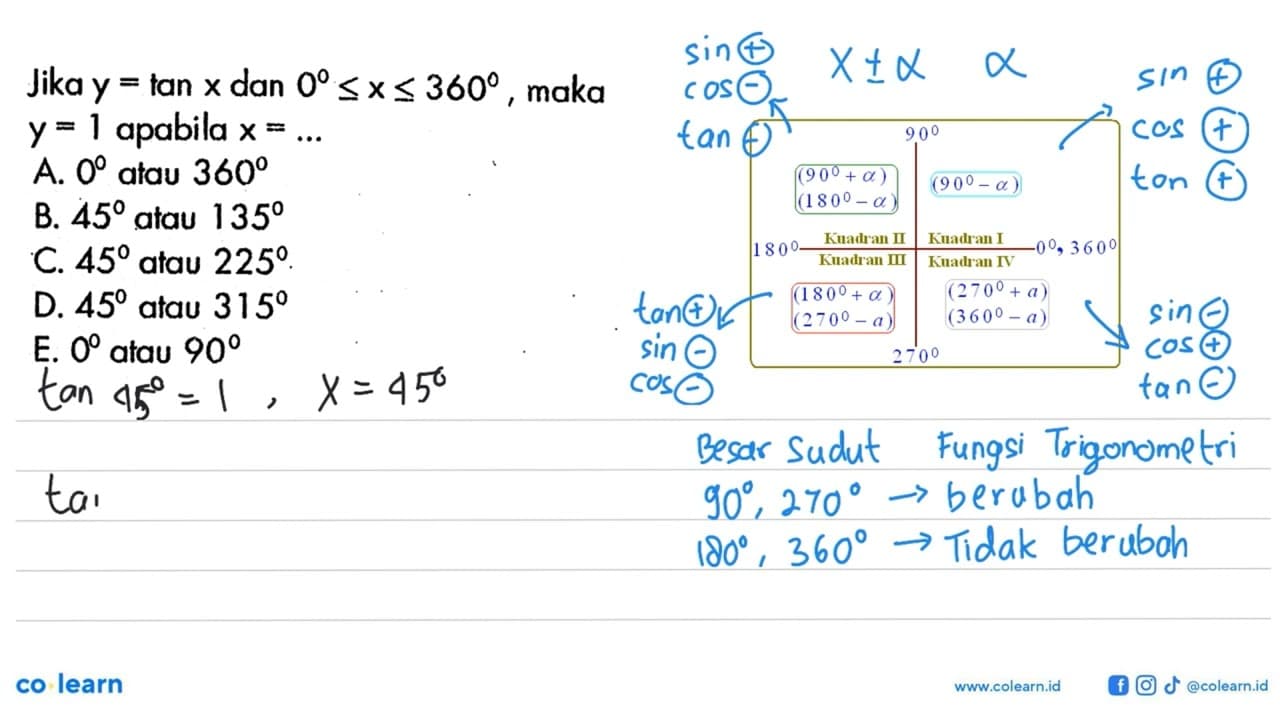 Jika y = tan x dan 0⁰ ≤ x ≤ 360⁰, maka
y = 1 apabila x = ...
A. 0⁰ atau 360⁰
B. 45⁰ atau 135⁰
C. 45⁰ atau 225⁰.
D. 45⁰ atau 315⁰
E. 0⁰ atau 90⁰
tan 45⁰ = 1 , x = 45⁰
ta
sin ⊕
cos ⊖
tan ⊖
x ± α α
sin ⊕
cos ⊕
tan ⊕
90⁰
(90⁰ + α)
(180⁰ − α)
(90⁰ − α)
180⁰
Kuadran II
Kuadran I
0⁰, 360⁰
Kuadran III
Kuadran IV
(180⁰ + α)
(270⁰ − a)
(270⁰ + a)
(360⁰ − a)
270⁰
tan ⊕
sin ⊖
cos ⊖
sin ⊖
cos ⊕
tan ⊖
Besar Sudut Fungsi Trigonometri
90⁰, 270⁰ → berubah
180⁰, 360⁰ → Tidak berubah
co learn
www.colearn.id
@colearn.id